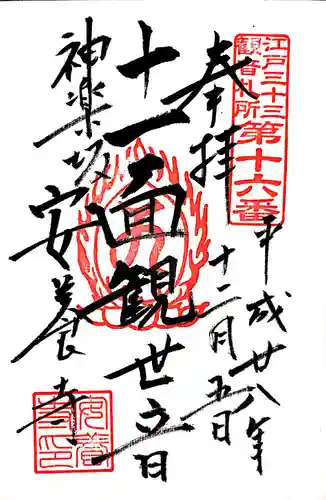 江戸三十三
観音札所
第十六番
奉拝
平成廿八年
十二月五日
十一面観世音
神楽坂
安養寺